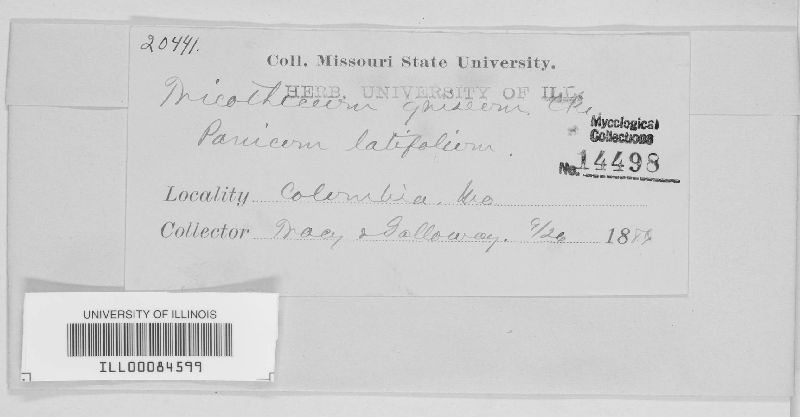 20441.
Coll. Missouri State University.
HERB. UNIVERSITY OF ILL.
Tricothecium griseum, Cke.
Panicum latifolium.
Mycological
Collections
No. 14498
Locality Columbia, Mo
Collector Tracy & Galloway. 9/20 18
UNIVERSITY OF ILLINOIS
ILL00084599